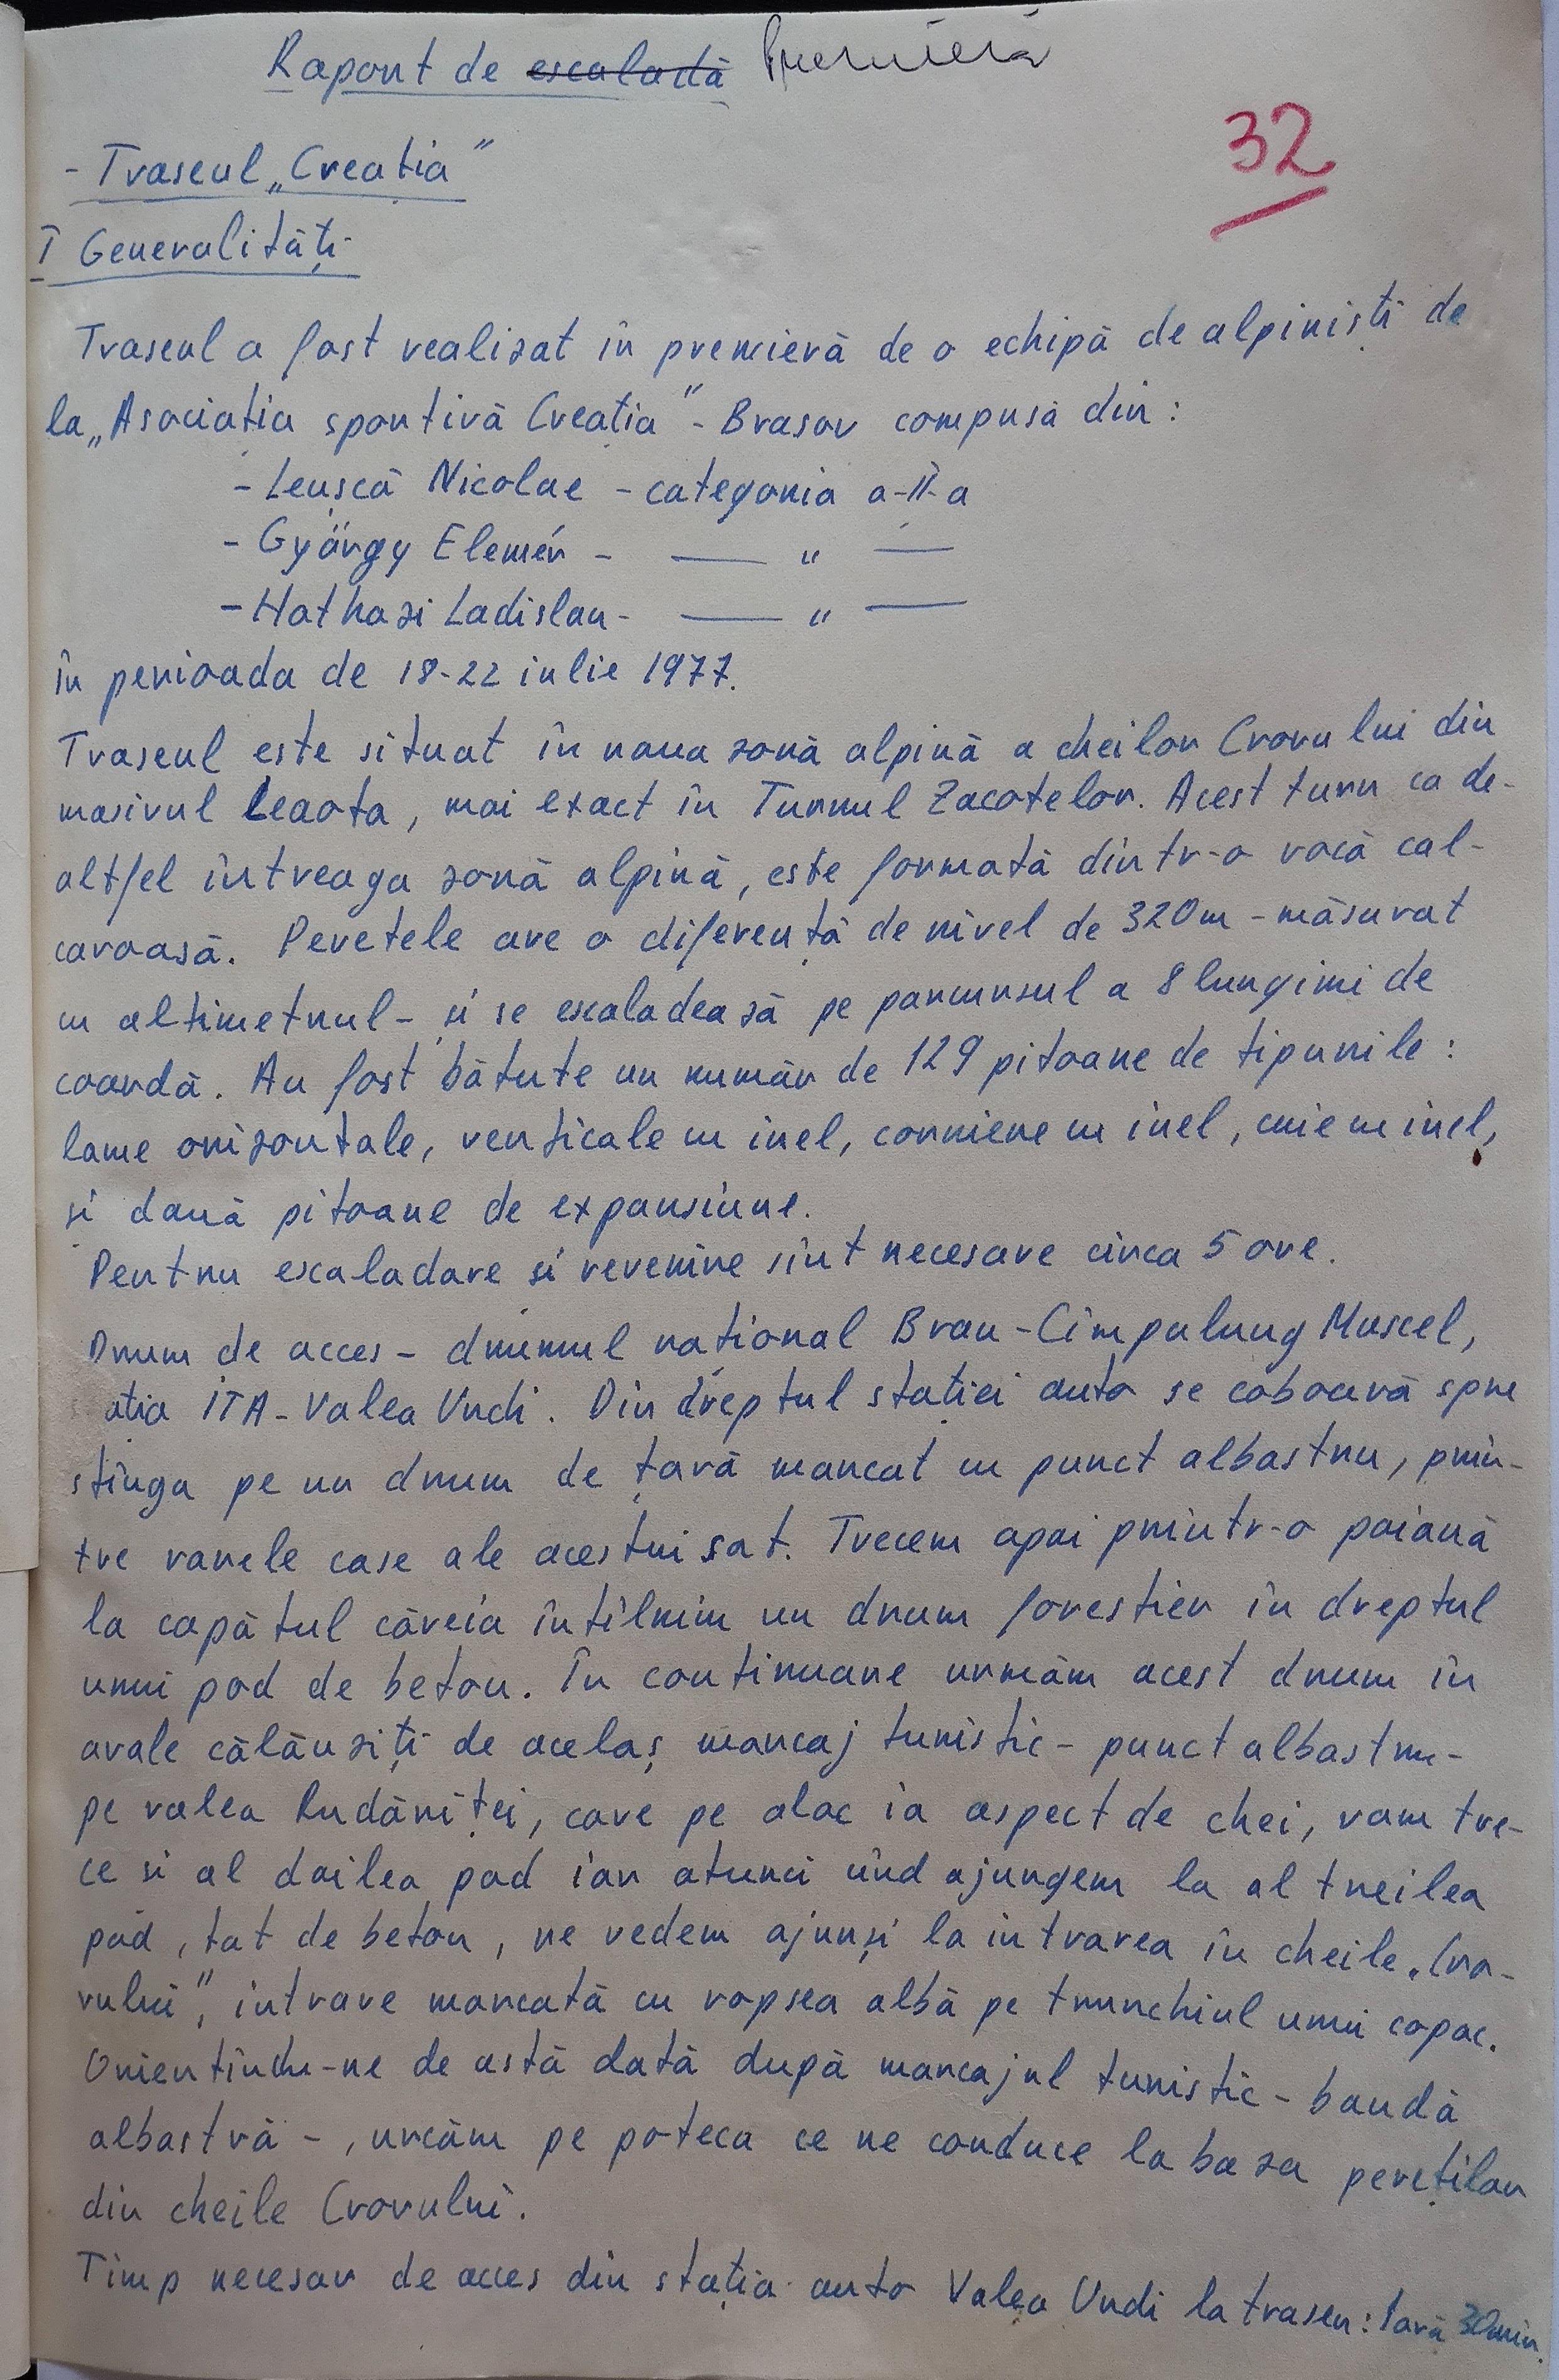 Raport de ~~escaladă~~ Premieră
32
- Traseul „Creația"
I Generalități
Traseul a fost realizat în premieră de o echipă de alpiniști de
la „Asociația sportivă Creația" - Brasov compusă din:
- Leușcă Nicolae - categoria a-II-a
- György Elemér - — " —
- Hathazi Ladislau - — " —
în perioada de 18-22 iulie 1977.
Traseul este situat în noua zonă alpină a cheilor Crovului din
masivul Leaota, mai exact în Turnul Zacotelor. Acest turn ca de-
altfel întreaga zonă alpină, este formată dintr-o rocă cal-
caroasă. Peretele are o diferență de nivel de 320m - măsurat
cu altimetrul - și se escaladează pe parcursul a 8 lungimi de
coardă. Au fost bătute un număr de 129 pitoane de tipurile:
lame orizontale, verticale cu inel, corniere cu inel, cuie cu inel,
si două pitoane de expansiune.
Pentru escaladare si revenire sînt necesare circa 5 ore.
Drum de acces - drumul național Bran-Cîmpulung Muscel,
stația ITA - Valea Urdi. Din dreptul stației auto se coboară spre
stînga pe un drum de țară marcat cu punct albastru, prin-
tre rarele case ale acestui sat. Trecem apoi printr-o poiană
la capătul căreia întîlnim un drum forestier în dreptul
unui pod de beton. În continuare urmăm acest drum în
avale călăuziți de acelaș marcaj turistic - punct albastru -
pe valea Rudăriței, care pe aloc ia aspect de chei, vom tre-
ce si al doilea pod iar atunci cînd ajungem la al treilea
pod, tot de beton, ne vedem ajunși la intrarea în cheile „Cro-
vului", intrare marcată cu vopsea albă pe trunchiul unui copac.
Orientîndu-ne de astă dată după marcajul turistic - bandă
albastră -, urcăm pe poteca ce ne conduce la baza pereților
din cheile Crovului.
Timp necesar de acces din stația auto Valea Urdi la traseu: 1oră 30min.